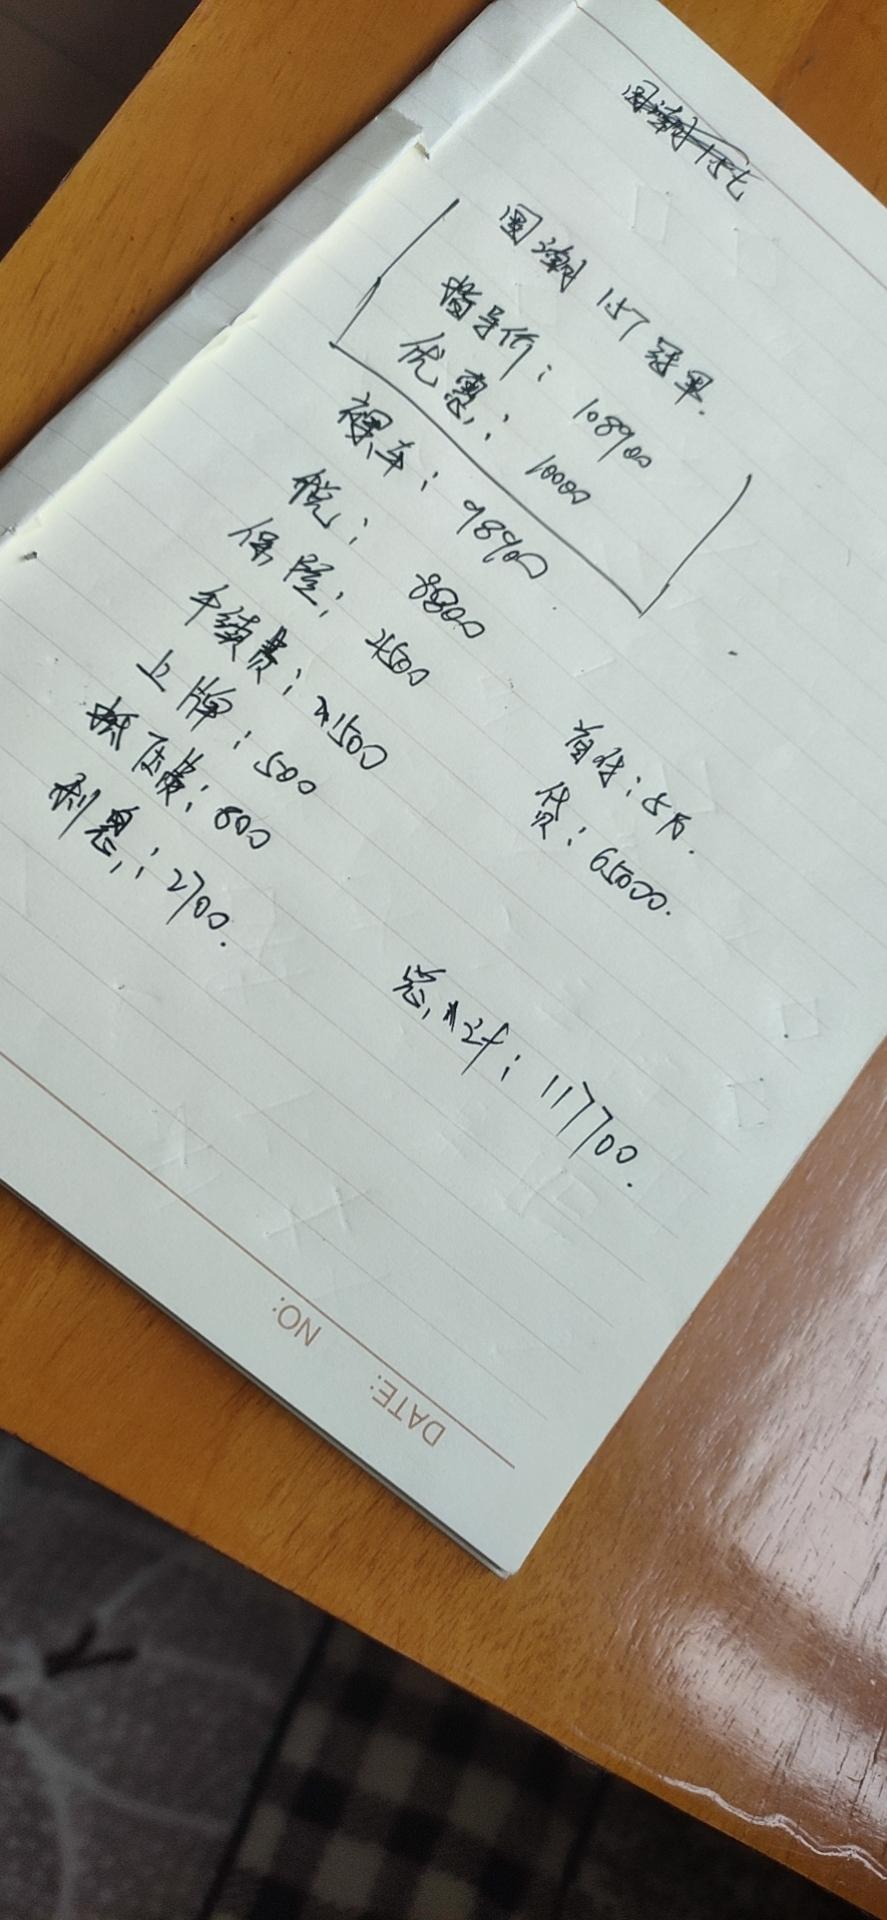 国潮 1.5T 冠军.
指导价: 108900
优惠: 10000
裸车: 98900
税: 8800
保险: 4500
手续费: 1500
上牌: 500
抵压费: 800
利息: 2700.
首付: 5万.
贷: 65000.
总计: 117700.
NO:
DATE: